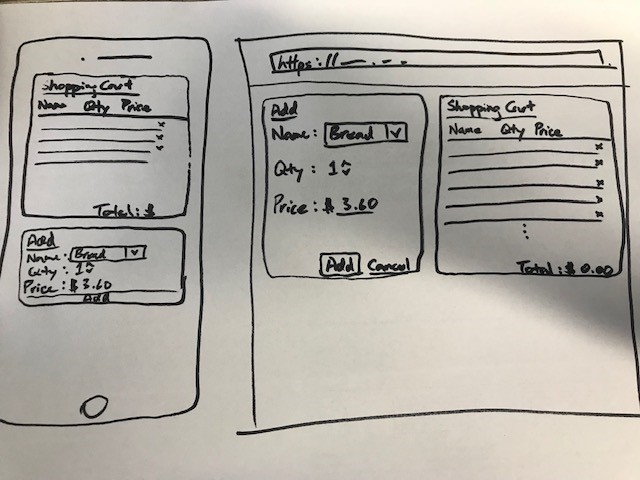 Shopping Cart
Name Qty Price
x
x
x
Total: $
Add
Name: Bread v
Qty: 1
Price: $ 3.60
Add
https://
Add
Name: Bread v
Qty: 1
Price: $ 3.60
Add Cancel
Shopping Cart
Name Qty Price
x
x
x
x
Total: $ 0.00